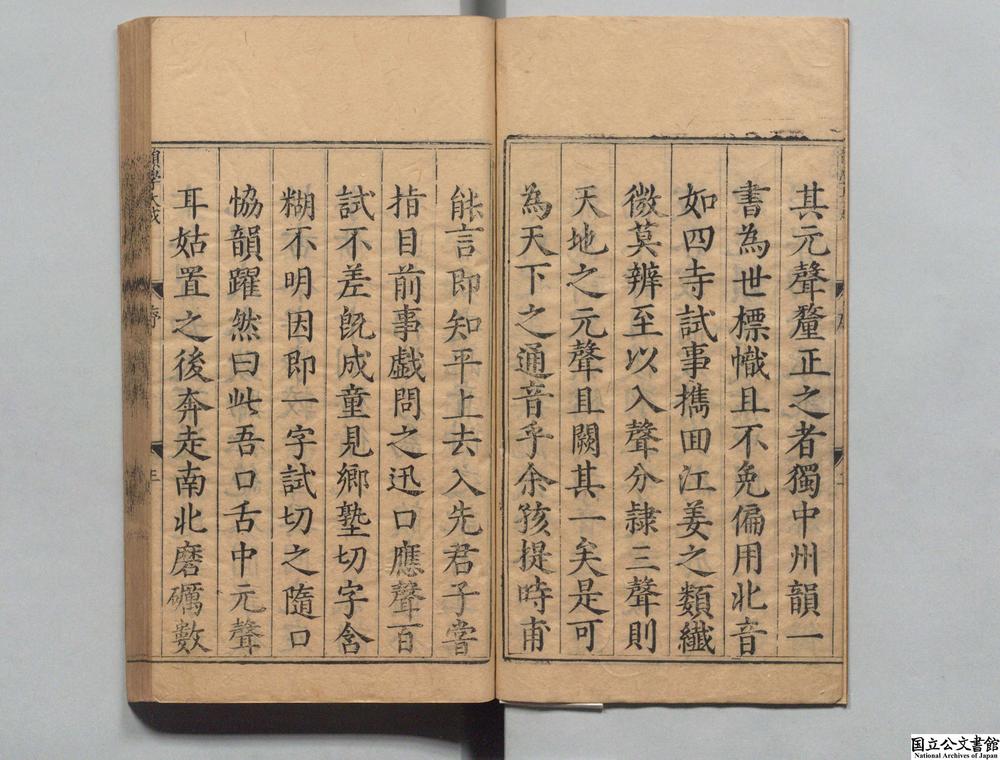 其元聲釐正之者獨中州韻一
書為世標幟且不免偏用北音
如四寺試事擕囬江姜之類纎
微莫辨至以入聲分隷三聲則
天地之元聲且闕其一矣是可
為天下之通音乎余孩提時甫
能言即知平上去入先君子嘗
指目前事戲問之迅口應聲百
試不差旣成童見鄉塾切字含
糊不明因即一字試切之隨口
恊韻躍然曰此吾口舌中元聲
耳姑置之後奔走南北磨礪數
韻學大成
序
三
国立公文書館
National Archives of Japan